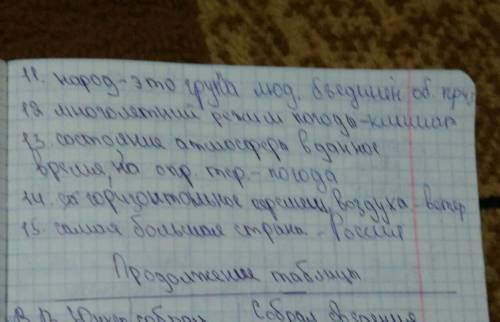 11. народ - это група люд. бъединён об. пр
12. многолетний режим погоды - климат
13. состояние атмосферы в данное
время, на опр. тер. - погода
14. горизонтальное воздуха - ветер
15. самая большая страна - Россия
Продолжение таблицы
собрал Собрал сведения